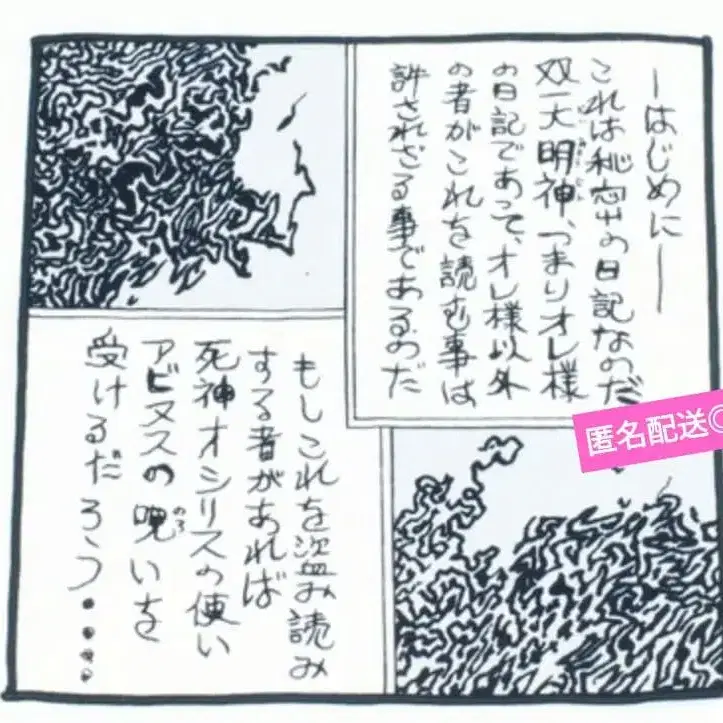 ―はじめに―
これは秘密の日記なのだ
双一大明神、つまりオレ様
の日記であって、オレ様以外
の者がこれを読む事は
許されざる事であるのだ
もしこれを盗み読み
する者があれば
死神オシリスの使い
アビヌスの呪いを
のろ
受けるだろう・・・・
匿名配送◎